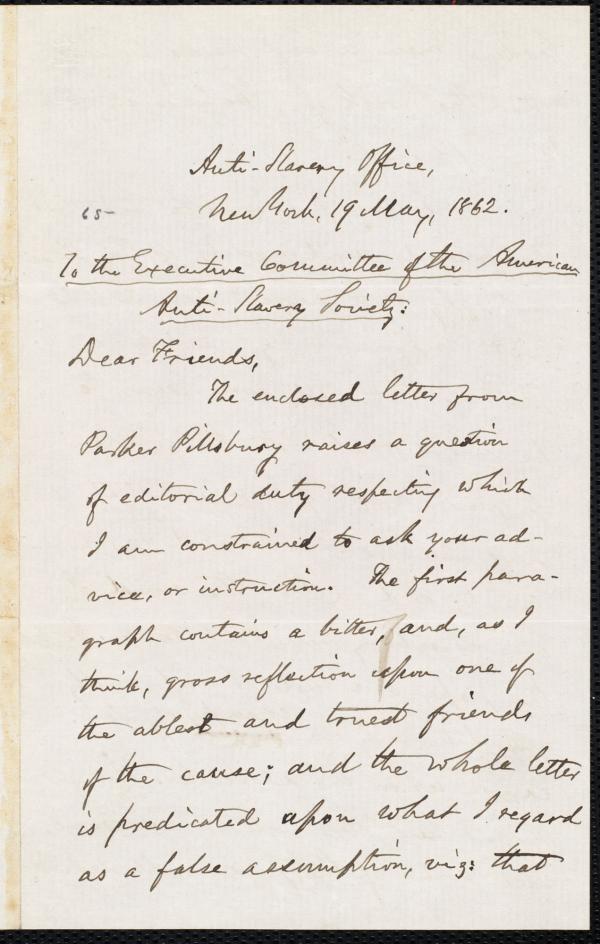 Anti-Slavery Office,
65- New York, 19 May, 1862.
To the Executive Committee of the American
Anti-Slavery Society:
Dear Friends,
The enclosed letter from
Parker Pillsbury raises a question
of editorial duty respecting which
I am constrained to ask your ad-
vice, or instruction. The first para-
graph contains a bitter, and, as I
think, gross reflection upon one of
the ablest and truest friends
of the cause; and the whole letter
is predicated upon what I regard
as a false assumption, viz: that